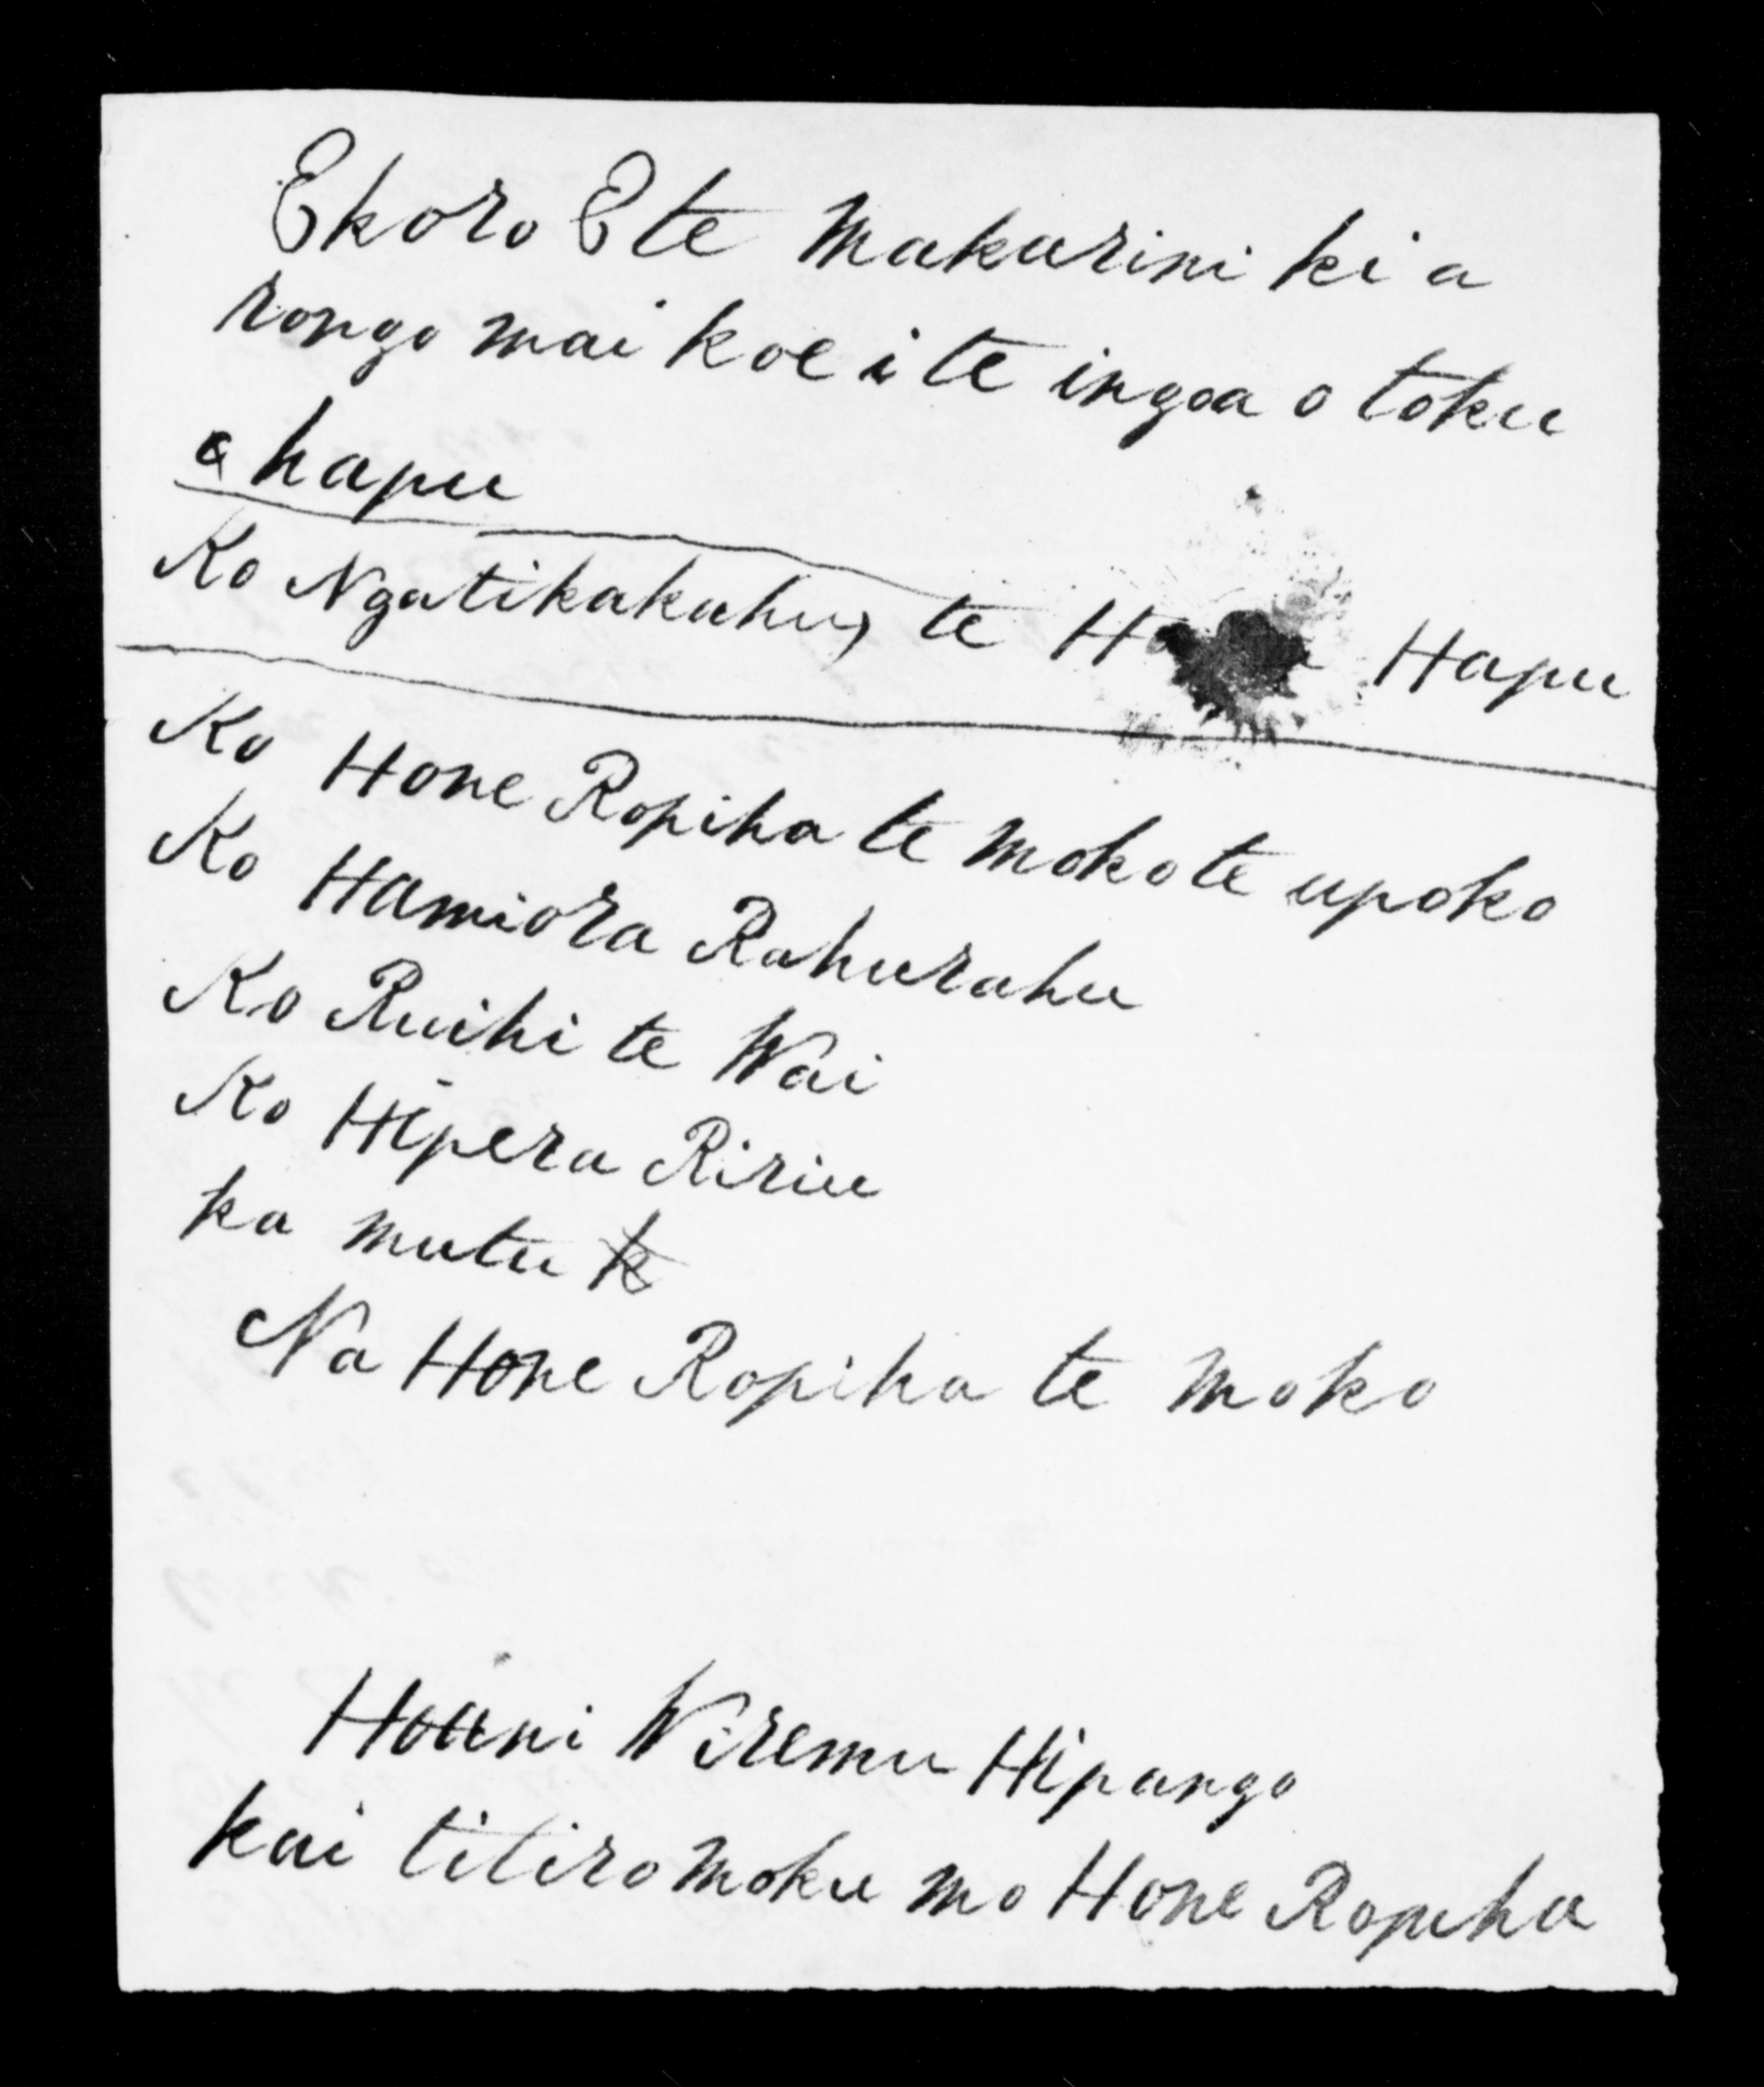 Ekoro E te Makarini ki a
rongo mai koe i te ingoa o toku
hapu
Ko Ngatikakahu, te Hapu
Ko Hone Ropiha te moko te upoko
Ko Hamiora Rahurahu
Ko Ruihi te Wai
Ko Hipera Ririu
ka mutu k
Na Hone Ropiha te moko
Hoani Wiremu Hipango
kai titiro moku mo Hone Ropiha